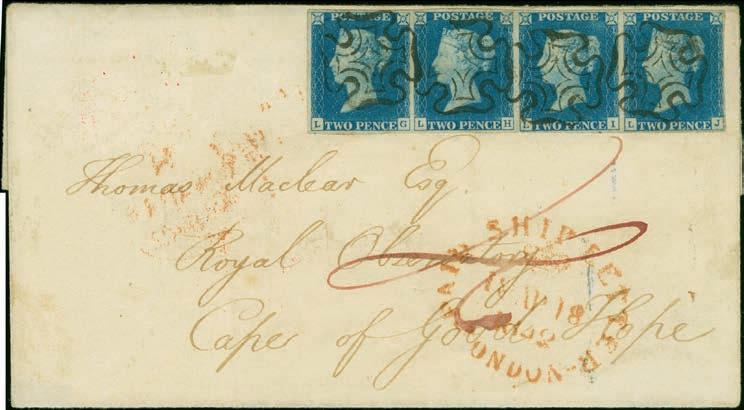 POSTAGE POSTAGE POSTAGE POSTAGE
L TWO PENCE G L TWO PENCE H L TWO PENCE I L TWO PENCE J
Thomas Maclear Esq.
Royal Observatory
Cape of Good Hope
PAID SHIP LETTER
18
LONDON